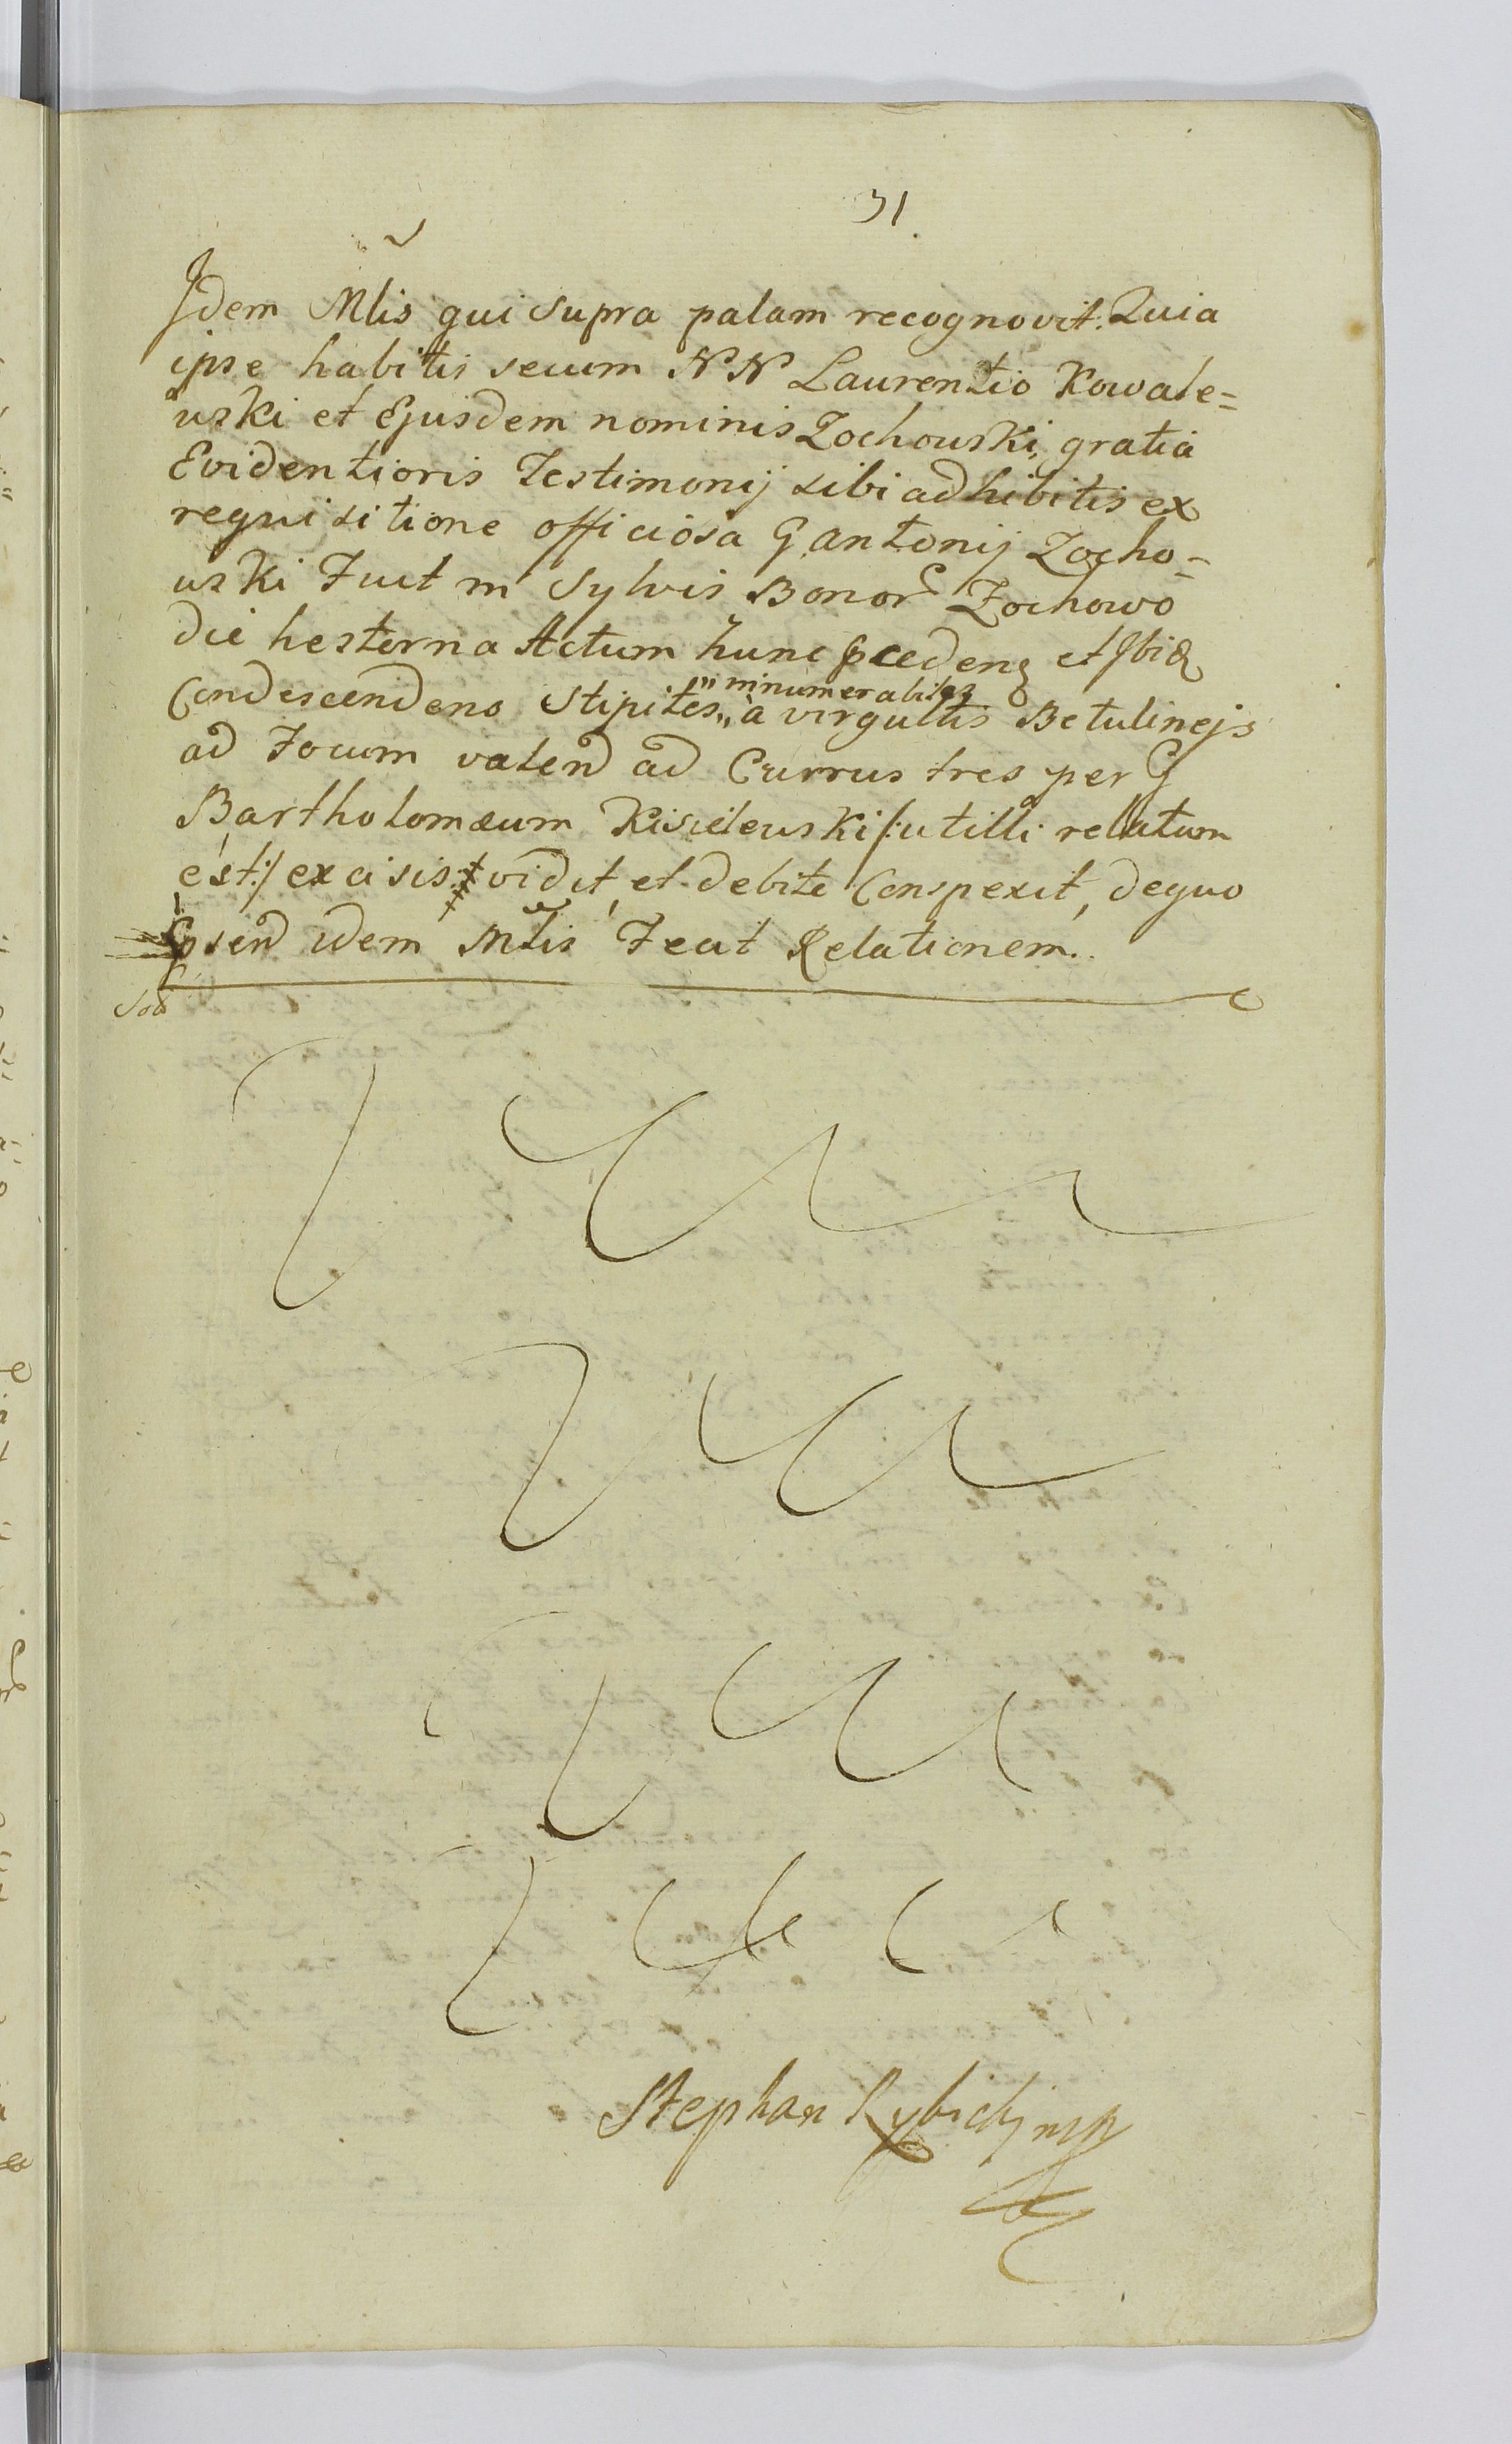 31.
Idem Mlis qui supra palam recognovit. Quia
ipse habitis secum NN Laurentio Kowale=
wski et Ejusdem nominis Zochowski, gratia
Evidentioris Testimonij sibi adhibitis ex
requisitione officiosa G Antonij Zocho=
wski Fuit in Sylvis Bonor Zochowo
die hesterna Actum hunc pcedens et Ibid
Condescendens Stipites „ innumerabiles „ à virgultis Betulinejs
ad Focum valend ad Currus tres per G
Bartholomæum Kisielewski /: ut illi relatum
est :/ excisis vidit, et debite Conspexit, dequo
Psend idem Mlis Fecit Relationem.
Stephan Rybicki mp